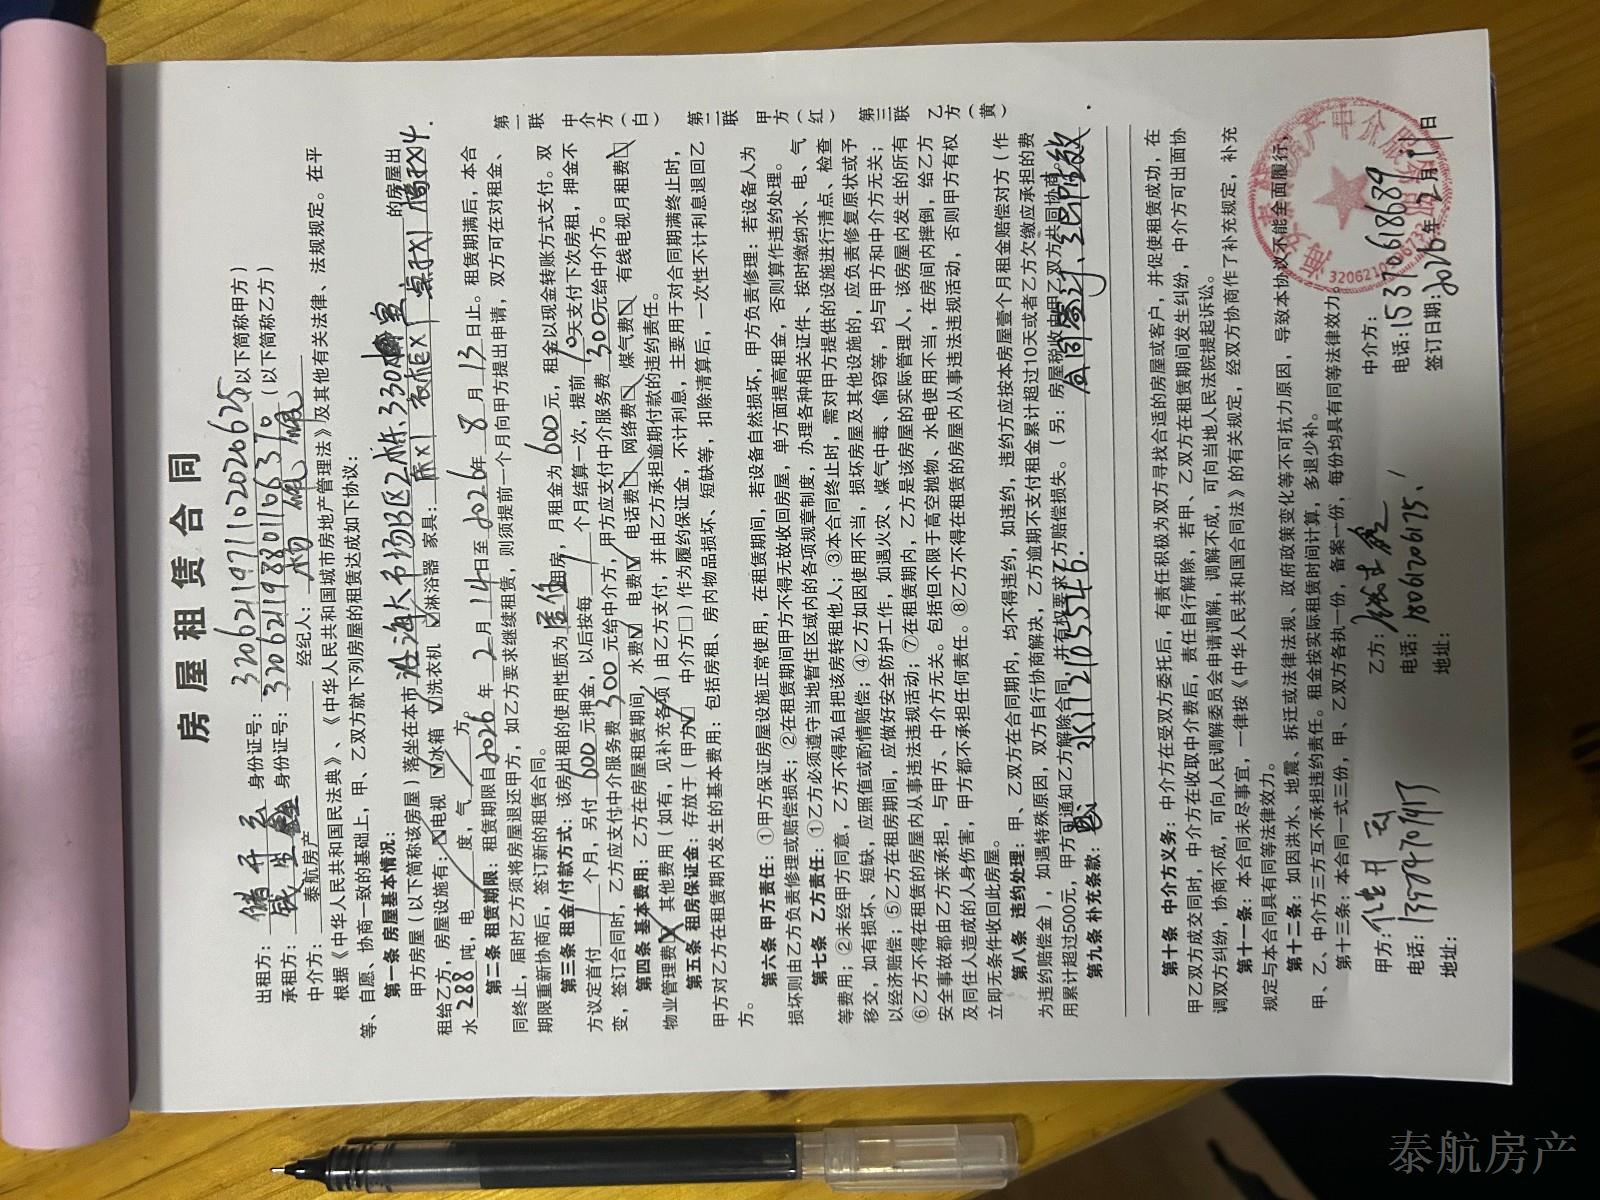 房屋租赁合同
出租方： 身份证号：3206211971102020625（以下简称甲方）
承租方： 身份证号：320621198801106370（以下简称乙方）
中介方：泰航房产 经纪人：杨
根据《中华人民共和国民法典》、《中华人民共和国城市房地产管理法》及其他有关法律、法规规定。在平
等、自愿、协商一致的基础上，甲、乙双方就下列房屋的租赁达成如下协议：
第一条 房屋基本情况：
甲方房屋（以下简称该房屋）落坐在本市 大市场B区2栋、330 的房屋出
租给乙方，房屋设施有：电视 冰箱 洗衣机 淋浴器 家具：床x1 衣柜x1 桌子x1 椅子x4.
水288吨，电 度，气 方。
第二条 租赁期限：租赁期限自2026年2月14日至2026年8月13日止。租赁期满后，本合
同终止，届时乙方须将房屋退还甲方，如乙方要求继续租赁，则须提前一个月向甲方提出申请，双方可在对租金、
期限重新协商后，签订新的租赁合同。
第三条 租金/付款方式：该房出租的使用性质为居住用房，月租金为600元，租金以现金转账方式支付。双
方议定首付1个月，另付600元押金，以后按每1个月结算一次，提前10天支付下次房租，押金不
变，签订合同时，乙方应支付中介服务费300元给中介方，甲方应支付中介服务费300元给中介方。
第四条 基本费用：乙方在房屋租赁期间，水费 电费 电话费 网络费 煤气费 有线电视月租费
物业管理费 其他费用（如有，见补充各项）由乙方支付，并由乙方承担逾期付款的违约责任。
第五条 租房保证金：存放于（甲方 中介方□）作为履约保证金，不计利息，主要用于对合同期满终止时，
甲方对乙方在租赁期内发生的基本费用：包括房租、房内物品损坏、短缺等，扣除清算后，一次性不计利息退回乙
方。
第六条 甲方责任：①甲方保证房屋设施正常使用，在租赁期间，若设备自然损坏，甲方负责修理：若设备人为
损坏则由乙方负责修理或赔偿损失；②在租赁期间甲方不得无故收回房屋，单方面提高租金，否则算作违约处理。
第七条 乙方责任：①乙方必须遵守当地暂住区域内的各项规章制度，办理各种相关证件、按时缴纳水、电、气
等费用；②未经甲方同意，乙方不得私自把该房转租他人；③本合同终止时，需对甲方提供的设施进行清点、检查
移交，如有损坏、短缺，应照值或酌情赔偿；④乙方如因使用不当，损坏房屋及其他设施的，应负责修复原状或予
以经济赔偿；⑤乙方在租房期间，应做好安全防护工作，如遇火灾、煤气中毒、偷窃等，均与甲方和中介方无关；
⑥乙方不得在租赁的房屋内从事违法违规活动；⑦在租赁期内，乙方是该房屋的实际管理人，该房屋内发生的所有
安全事故都由乙方来承担，与甲方、中介方无关。包括但不限于高空抛物、水电使用不当，在房间内摔倒，给乙方
及同住人造成的人身伤害，甲方都不承担任何责任。⑧乙方不得在租赁的房屋内从事违法违规活动，否则甲方有权
立即无条件收回此房屋。
第八条 违约处理：甲、乙双方在合同期内，均不得违约，如违约，违约方应按本房屋壹个月租金赔偿对方（作
为违约赔偿金），如遇特殊原因，双方自行协商解决，乙方逾期不支付租金累计超过10天或者乙方欠缴应承担的费
用累计超过500元，甲方可通知乙方解除合同，并有权要求乙方赔偿损失。（另：房屋税收由甲乙双方共同协商。
第九条 补充条款： 水门2105546. 合同签订、三日有效.
第十条 中介方义务：中介方在受双方委托后，有责任积极为双方寻找合适的房屋或客户，并促使租赁成功，在
甲乙双方成交同时，中介方在收取中介费后，责任自行解除，若甲、乙双方在租赁期间发生纠纷，中介方可出面协
调双方纠纷，协商不成，可向人民调解委员会申请调解，调解不成，可向当地人民法院提起诉讼。
第十一条：本合同未尽事宜，一律按《中华人民共和国合同法》的有关规定，经双方协商作了补充规定，补充
规定与本合同具有同等法律效力。
第十二条：如因洪水、地震、拆迁或法律法规、政府政策变化等不可抗力原因，导致本协议不能全面履行，
甲、乙、中介方三方互不承担违约责任。租金按实际租赁时间计算，多退少补。
第十三条：本合同一式三份，甲、乙双方各执一份，备案一份，每份均具有同等法律效力。
甲方： 乙方： 中介方：
电话：13584707917 电话：18061206175 电话：15370618689
地址： 地址： 签订日期：2026年2月11日
第一联 中介方（白） 第二联 甲方（红） 第三联 乙方（黄）
泰航房产